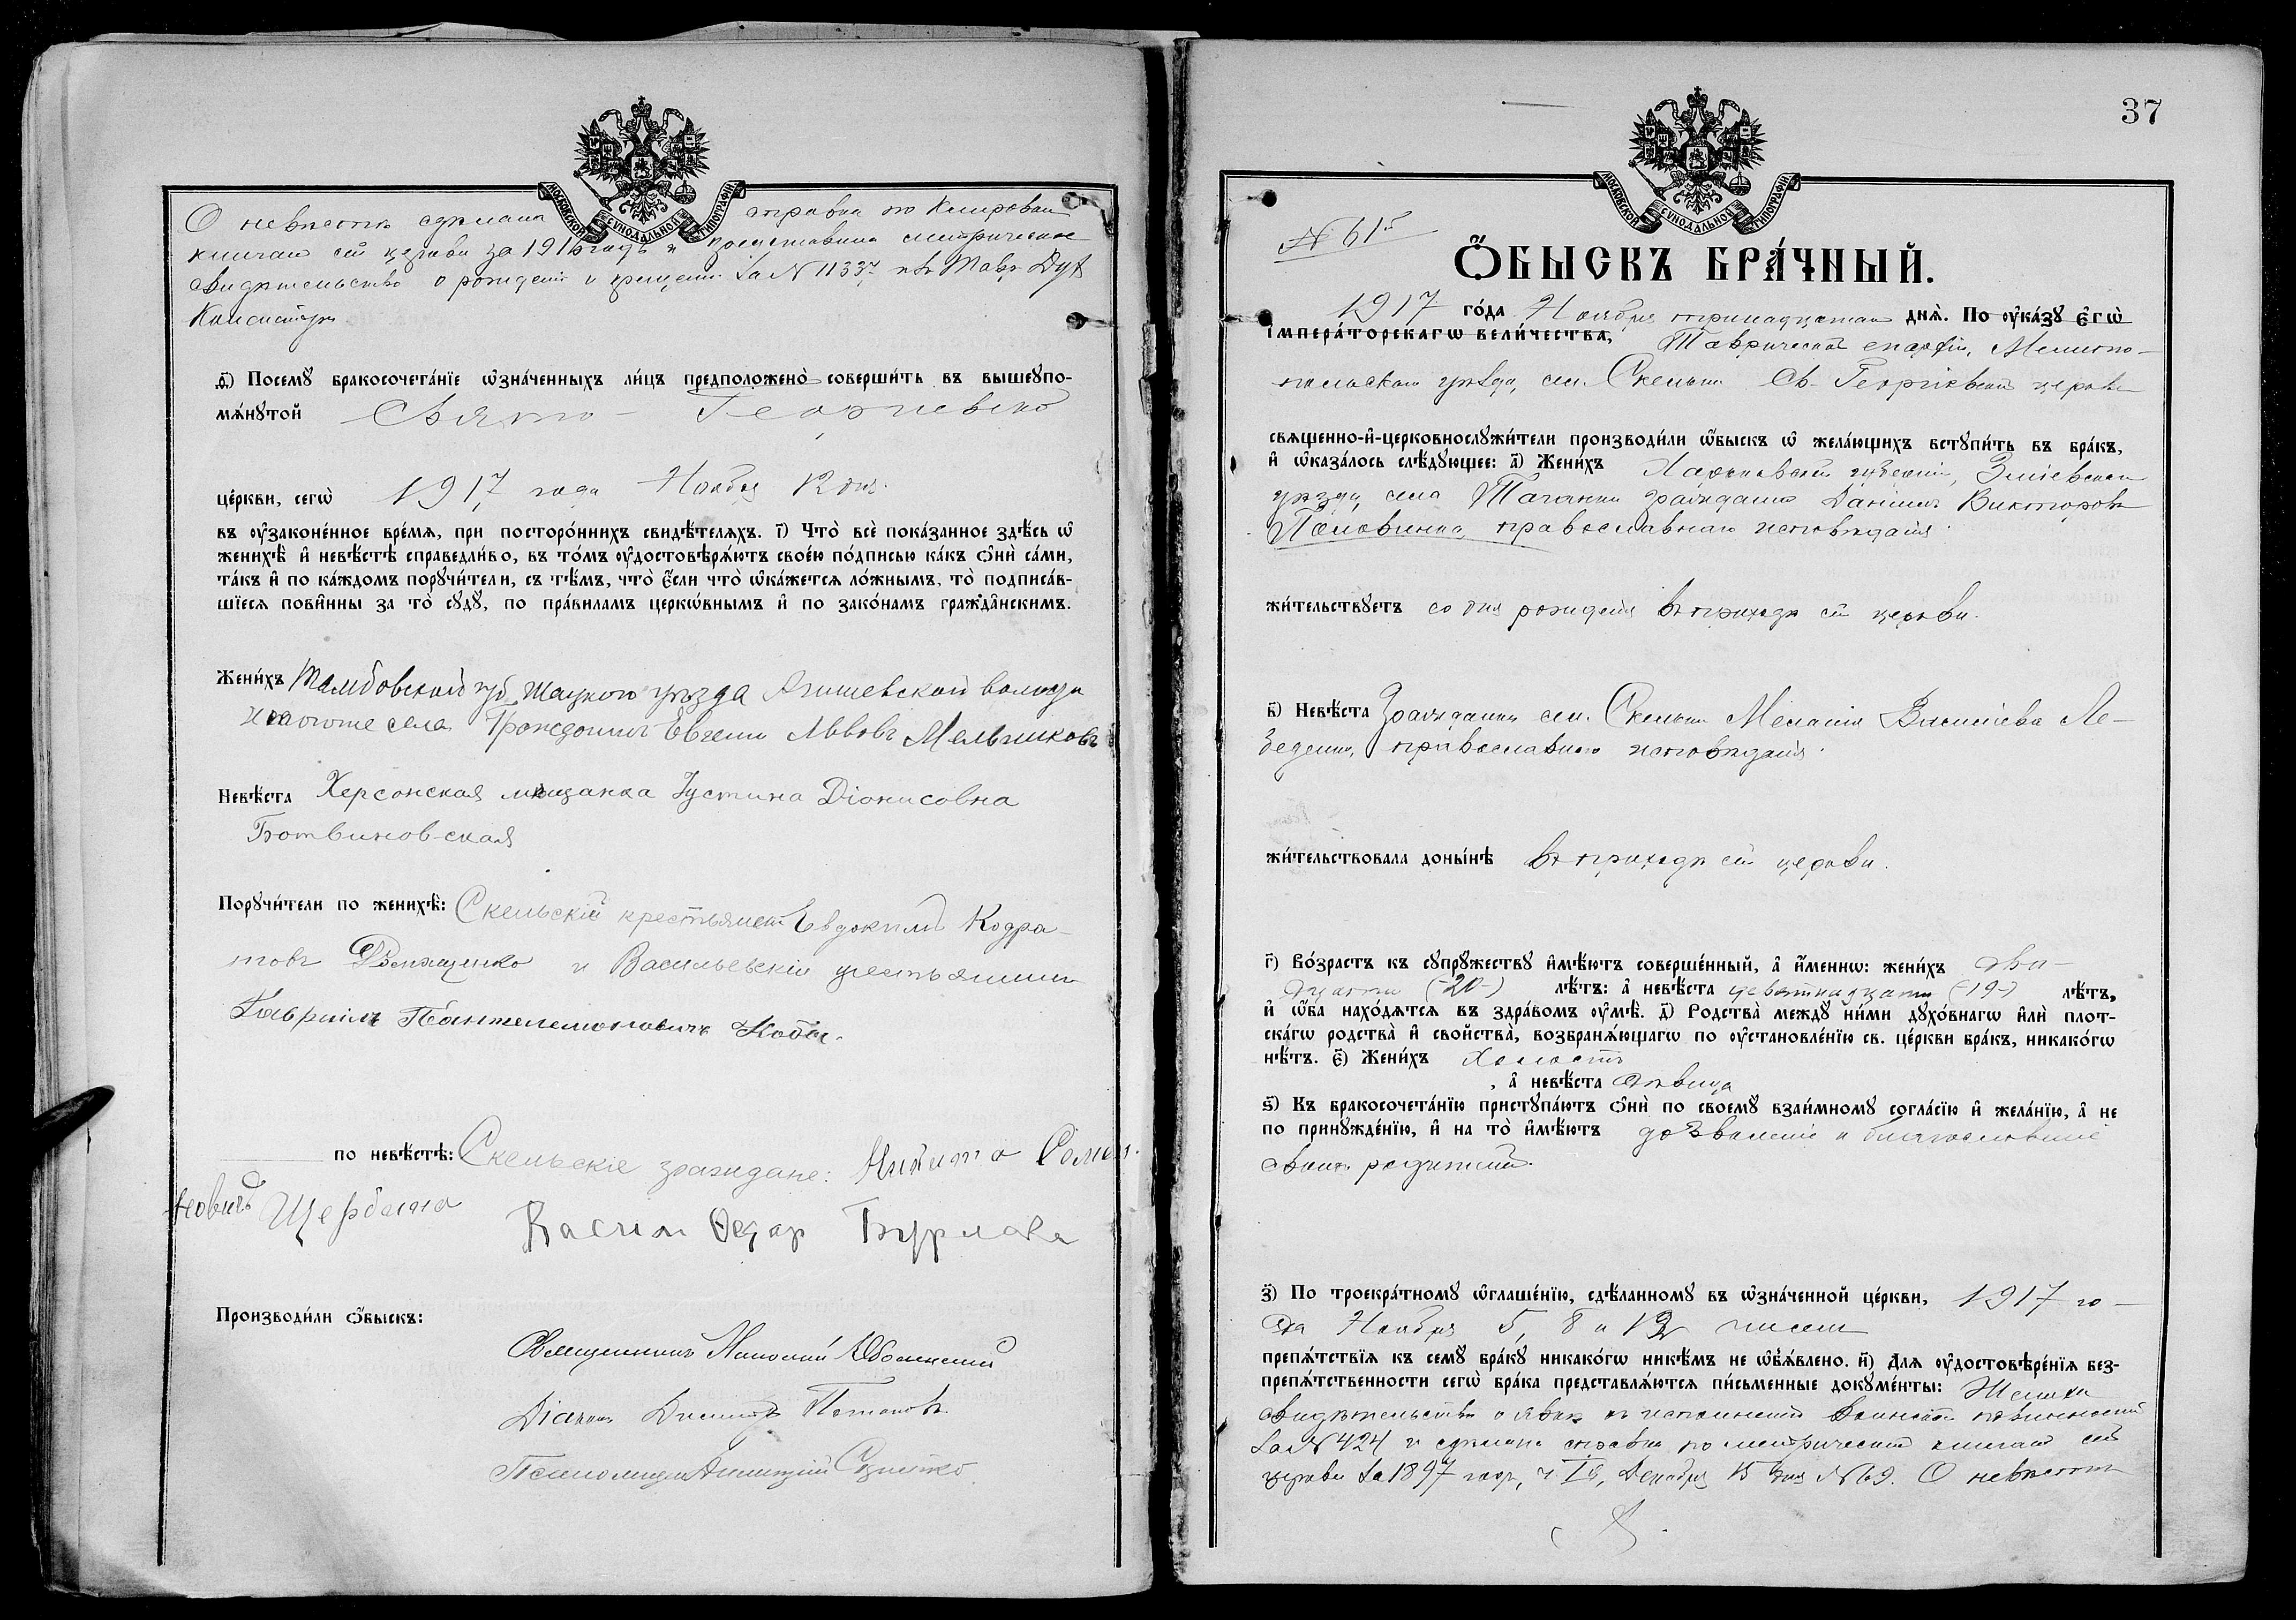 О невѣстѣ сдѣлана справка по клировым
книгам сей церкви за 1916 годъ и представлена метрическое
свидѣтельство о рожденіи и крещеніи за № 11337 изъ Тавр. Дух
Консисторіи
МОСКОВСКОЙ СѴНОДАЛЬНОЙ ТИПОГРАФІИ
ѳ҃) Посемꙋ бракосочета́нїе ѡ҆зна́ченныхъ ли́цъ предположено̀ соверши́ть въ вышеꙋпо-
мѧ́нꙋтой Свято-Георгиевской
це́ркви, сегѡ̀ 1917 года Ноября 12 дня.
въ ᲂу҆законе́нное вре́мѧ, при посторо́ннихъ свидѣ́телѧхъ. і҃) Что̀ всѐ пока́занное здѣ́сь ѡ҆
женихѣ̀ и҆ невѣ́стѣ справедли́во, въ то́мъ ᲂу҆достовѣрѧ́ютъ свое́ю по́дписью ка́къ ѻ҆нѝ са́ми,
та́къ и҆ по ка́ждомъ порꙋчи́тели, съ тѣ́мъ, что̀ є҆́сли что̀ ѡ҆ка́жетсѧ ло́жнымъ, то̀ подписа́в-
шїесѧ пови́нны за то̀ сꙋдꙋ̀, по пра́виламъ церкѡ́внымъ и҆ по зако́намъ гражда́нскимъ.
Жени́хъ Тамбовской губ. Шацкого уѣзда Агишевской волости
и того же села Гражданин Евгений Львовъ Мельниковъ
Невѣ́ста Херсонская мѣщанка Іустина Діонисовна
Ботвиновская
Порꙋчи́тели по женихѣ̀: Скельскій крестьянинъ Евдокимъ Кодра-
товъ и Васильевскій крестьянинъ
Гавріилъ Пантелемоновичъ Коба.
по невѣ́стѣ: Скельскіе граждане: Никита Семен.
новичъ Щербина Василь Ѳедор Бурлака
Производи́ли ѻ҆́быскъ:
Священникъ Николай Оболенский
Діаконъ Димитрій Потаповъ
Псаломщикъ
37
МОСКОВСКОЙ СѴНОДАЛЬНОЙ ТИПОГРАФІИ
№ 61й
Ѻ҆́БЫСКЪ БРА́ЧНЫЙ.
1917 го́да Ноября тринадцатаго днѧ̀. По ᲂу҆ка́зꙋ є҆гѡ̀
і҆мпера́торскагѡ вели́чества, Таврической епархіи, Мелито-
польскаго уѣзда, сел. Скельки Св. Георгіевской церкви
свѧщенно-и҆-церковнослꙋжи́тели производи́ли ѡ҆́быскъ ѡ҆ жела́ющихъ встꙋпи́ть въ бра́къ,
и҆ ѡ҆каза́лось слѣ́дꙋющее: а҃) Жени́хъ Харьковской губерніи, Зміевскаго
уѣзда, села гражданин Даніилъ Викторовъ
Половинка, православнаго исповѣданія.
жи́тельствꙋетъ со дня рожденія въ приходѣ сей церкви.
в҃) Невѣ́ста Гражданка сел. Скельки Меланія Василіева Ле-
беденко, православнаго исповѣданія.
жи́тельствовала доны́нѣ въ приходѣ сей церкви.
г҃) Во́зрастъ къ сꙋпрꙋ́жествꙋ и҆мѣ́ютъ соверше́нный, а҆ и҆́меннѡ: жени́хъ два-
дцати (-20-) лѣ́тъ: а҆ невѣ́ста девятнадцати (-19-) лѣ́тъ,
и҆ ѡ҆́ба нахо́дѧтсѧ въ здра́вомъ ᲂу҆мѣ̀. д҃) Родства̀ междꙋ̀ ни́ми дꙋхо́внагѡ и҆лѝ плот-
ска́гѡ родства̀ и҆ сво́йства̀, возбранѧ́ющагѡ по ᲂу҆становле́нїю св. це́ркви бра́къ, никако́гѡ
нѣ́тъ. є҃) Жени́хъ Холостъ
, а҆ невѣ́ста дѣвица
ѕ҃) Къ бракосочета́нїю пристꙋпа́ютъ ѻ҆нѝ по своемꙋ̀ взаи́мномꙋ согла́сїю и҆ жела́нїю, а҆ не
по принꙋжде́нїю, и҆ на то̀ и҆мѣ́ютъ дозволеніе и благословеніе
своихъ родителей.
з҃) По троекра́тномꙋ ѡ҆глаше́нїю, сдѣ́ланномꙋ въ ѡ҆зна́ченной це́ркви, 1917 го-
да Ноября 5, 8 и 12 чиселъ
препѧ́тствїѧ къ семꙋ̀ бра́кꙋ никако́гѡ никѣ́мъ не ѡ҆б̾ѧ́влено. и҃) Длѧ ᲂу҆достовѣре́нїѧ без-
препѧ́тственности сегѡ̀ бра́ка представлѧ́ютсѧ пи́сьменные докꙋме́нты: Жениха
свидѣтельство о явкѣ къ исполненію воинской повинности
за № 424 и сдѣлана справка по метрическим книгам сей
церкви за 1897 годъ, ч. Iю, Декабря 15 дня № 69. О невѣстѣ